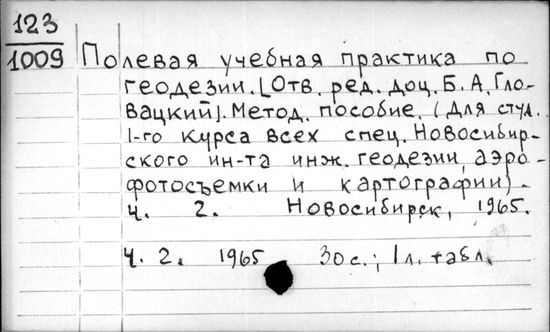 123
1009
Полевая учебная практика по
геодезии. [Отв. ред. доц. Б. А. Гло-
вацкий]. Метод. пособие. (Для студ.
1-го курса всех спец. Новосибир-
ского ин-та инж. геодезии, аэро-
фотосъемки и картографии).
Ч. 2. Новосибирск, 1965.
Ч. 2. 1965 30 с.; 1 л. табл.